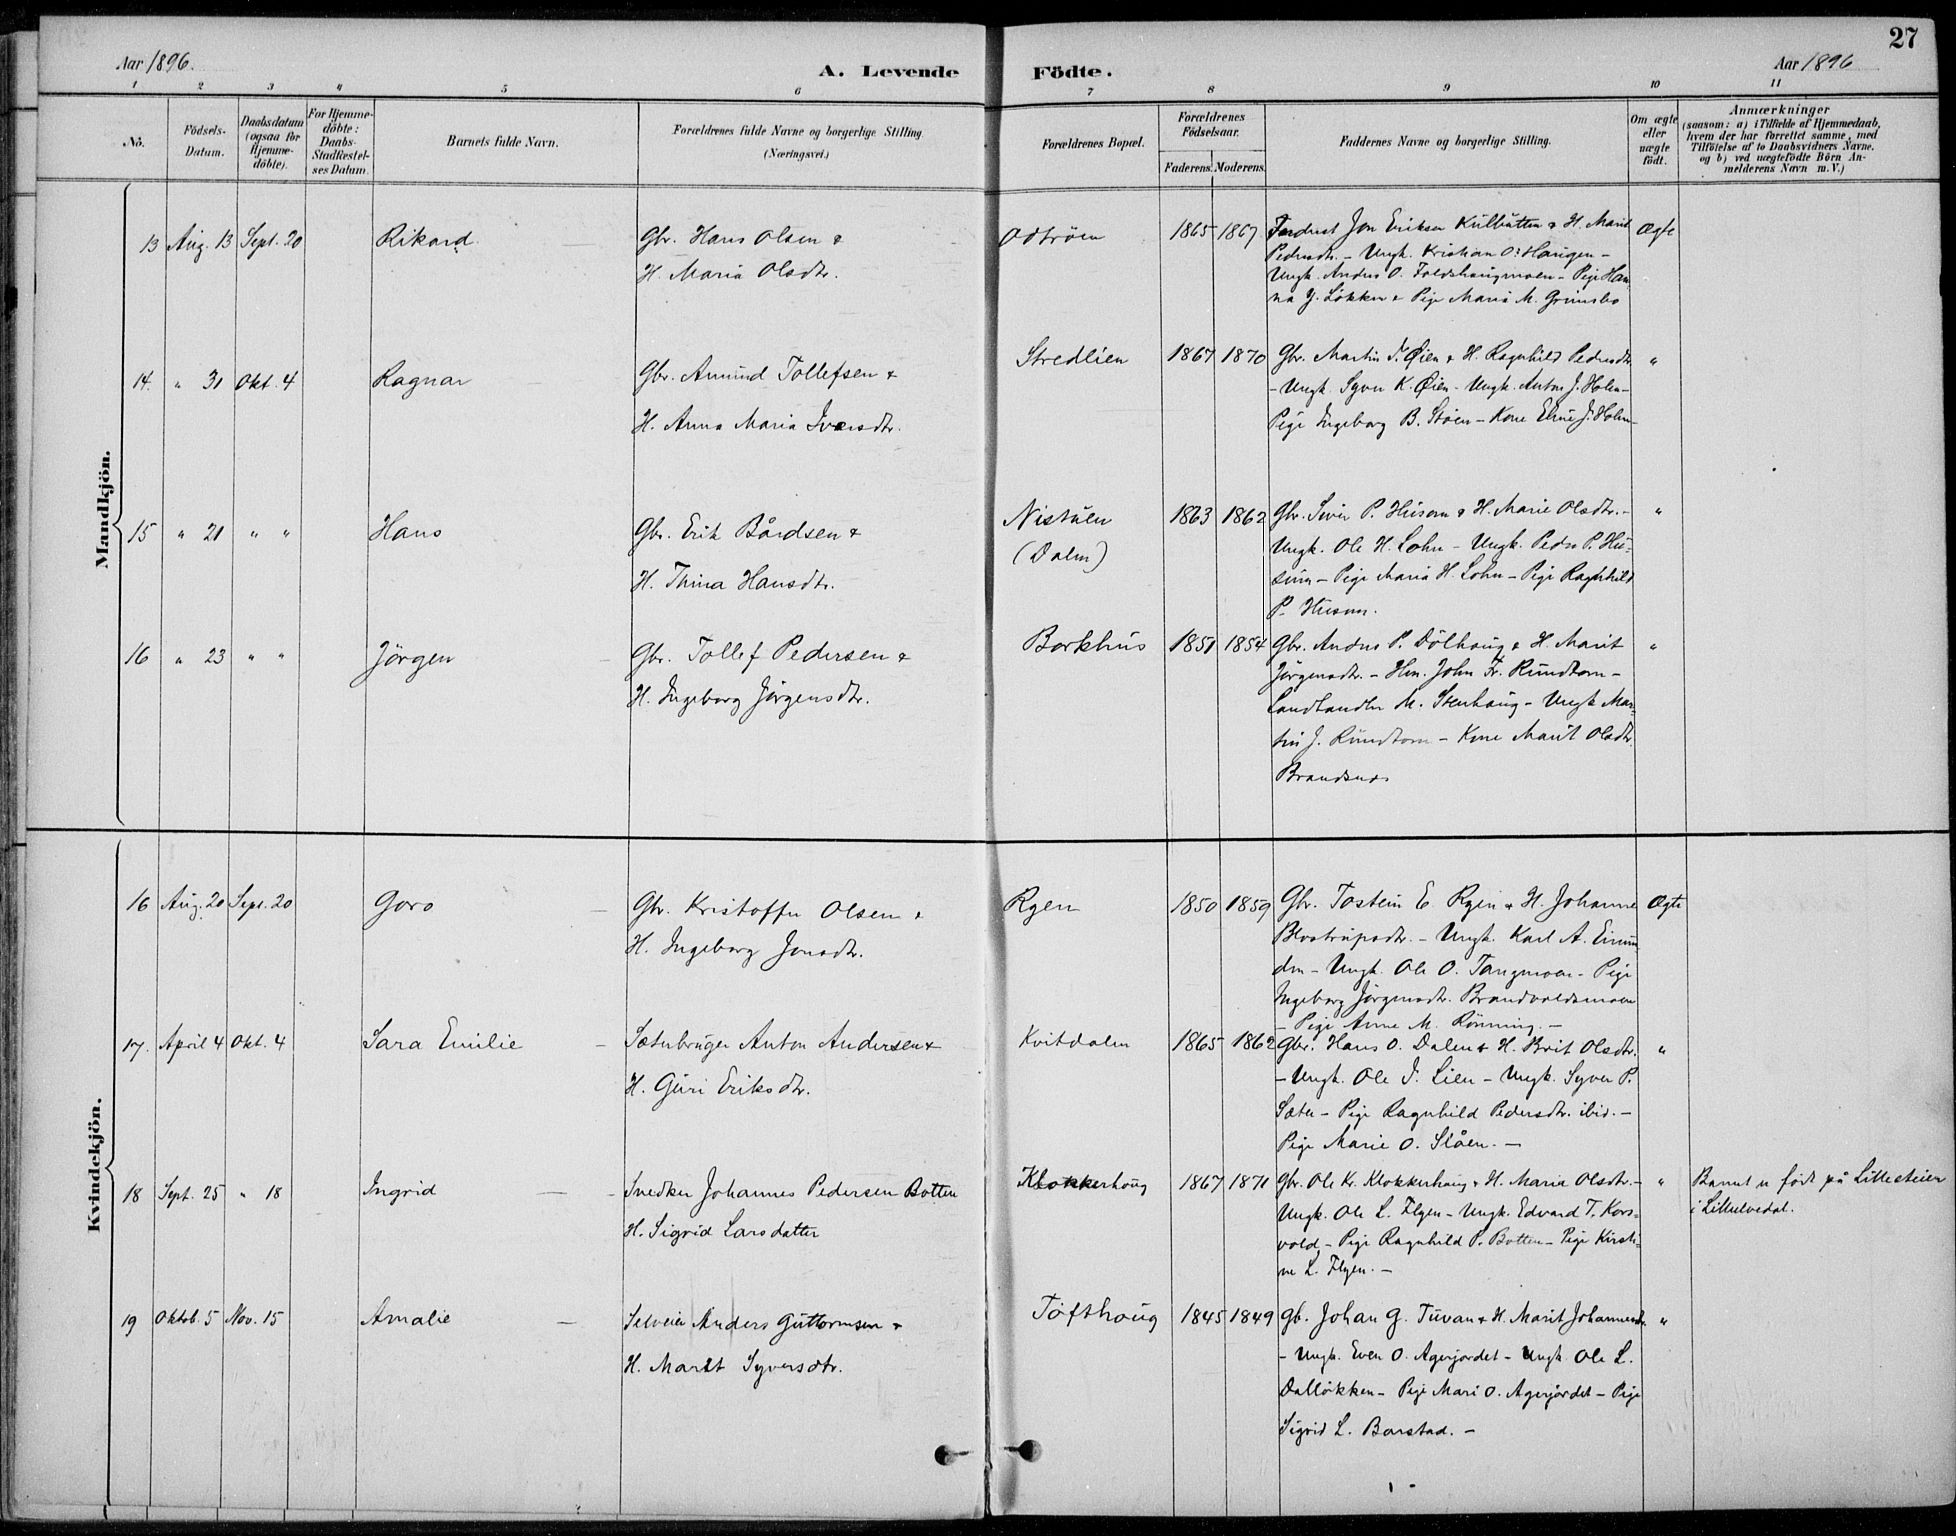 27
Aar 1896.
A. Levende Födte.
Aar 1896
1 2 3 4 5 6 7 8 9 10 11
No.
Födsels-
Datum.
Daabsdatum
(ogsaa for
Hjemme-
döbte).
For Hjemme-
döbte:
Daabs-
Stadfestel-
ses Datum.
Barnets fulde Navn.
Forældrenes fulde Navne og borgerlige Stilling
(Næringsvei.)
Forældrenes Bopæl.
Forældrenes
Födselsaar.
Faderens. Moderens.
Faddernes Navne og borgerlige Stilling.
Om ægte
eller
uægte
födt.
Anmærkninger
(saasom: a) i Tilfælde af Hjemmedaab,
hvem der har forrettet samme, med
Tilföielse af to Daabsvidners Navne.
og b) ved uægtefödte Börn An-
melderens Navn m. V.)
Mandkjön.
13 Aug. 13 Sept. 20 Rikard
Gbr. Hans Olsen &
H. Maria Olsdtr.
Odtröen 1865 1867
Jon Eriksen Kulbutten & H. Marit
Pedersdtr. - Ungk. Kristian O. Haugen -
Ungk. Anders O. Foldshaugmoen - Pige Han-
na J. Lökken & Pige Maria M. Grimsbo
Ægte
14. " 31 Okt. 4 Ragnar
Gbr. Amund Tollefsen &
H. Anna Maria Iversdtr.
Stredlien 1867 1870
Gbr. Martin T. Øien & H. Ragnhild Pedersdtr
- Ungk. Syver K. Øien - Ungk. Anton J. Holen -
Pige Ingeborg B. Stöen - Kone Eline J. Holen -
"
15 " 21 " " Hans
Gbr. Erik Bårdsen &
H. Thina Hansdtr.
Nistuen
(Dalen)
1863 1862
Gbr. Siver P. Husom & H. Marie Olsdtr. -
Ungk. Ole H. Lohn - Ungk. Peder P. Hu-
sum - Pige Maria H. Lohn - Pige Ragnhild
P. Husom.
"
16 " 23 " " Jörgen
Gbr. Tollef Pedersen &
H. Ingeborg Jörgensdtr.
Borkhus 1851 1854
Gbr. Anders P. Dölhaug & H. Marit
Jörgensdtr. - Hm. John Fr. Rundtom -
Landhandler M. Stenhaug - Ungk Mar-
tin J. Rundtom - Kone Marit Olsdtr.
Brandsnes
"
Kvindekjön.
16 Aug. 20 Sept. 20 Goro
Gbr. Kristoffer Olsen &
H. Ingeborg Jonsdtr.
Ryen 1850 1859
Gbr. Tostein E. Ryen & H. Johanne
Blostrupsdtr. - Ungk. Karl A. Einun-
den - Ungk. Ole O. Tangmoen - Pige
Ingeborg Jörgensdtr. Brandvoldsmoen
- Pige Anne M. Rönning. -
Ægte
17. April 4 Okt. 4 Sara Emilie
Sæterbruger Anton Andersen &
H. Guri Eriksdtr.
Kvitdalen 1865 1862
Gbr. Hans O. Dalen & H. Brit Olsdtr.
- Ungk. Ole J. Lien - Ungk. Syver P.
Sæter - Pige Ragnhild Pedersdtr. ibid. -
Pige Marie O. Slåen. -
"
18 Sept. 25 " 18 Ingrid
Snedker Johannes Pedersen Botten
H. Sigrid Larsdatter
Klokkerhoug 1867 1871
Gbr. Ole Kr. Klokkerhaug & H. Maria Olsdtr. -
Ungk. Ole L. Flyen - Ungk. Edvard T. Kors-
vold, - Pige Ragnhild P. Botten - Pige Kirsti-
ne L. Flyen. -
"
Barnet er född på Lillesteien
i Lilleelvedal.
19 Oktob. 5 Nov. 15 Amalie
Selveier Anders Guttormsen &
H. Marit Syversdtr.
Tofthoug 1845 1849
Gb. Johan G. Tuvan & H. Marit Johannesdr.
- Ungk. Even O. Agerjordet - Ungk Ole L.
Dallökken - Pige Mari O. Agerjordet - Pige
Sigrid L. Barstad. -
"